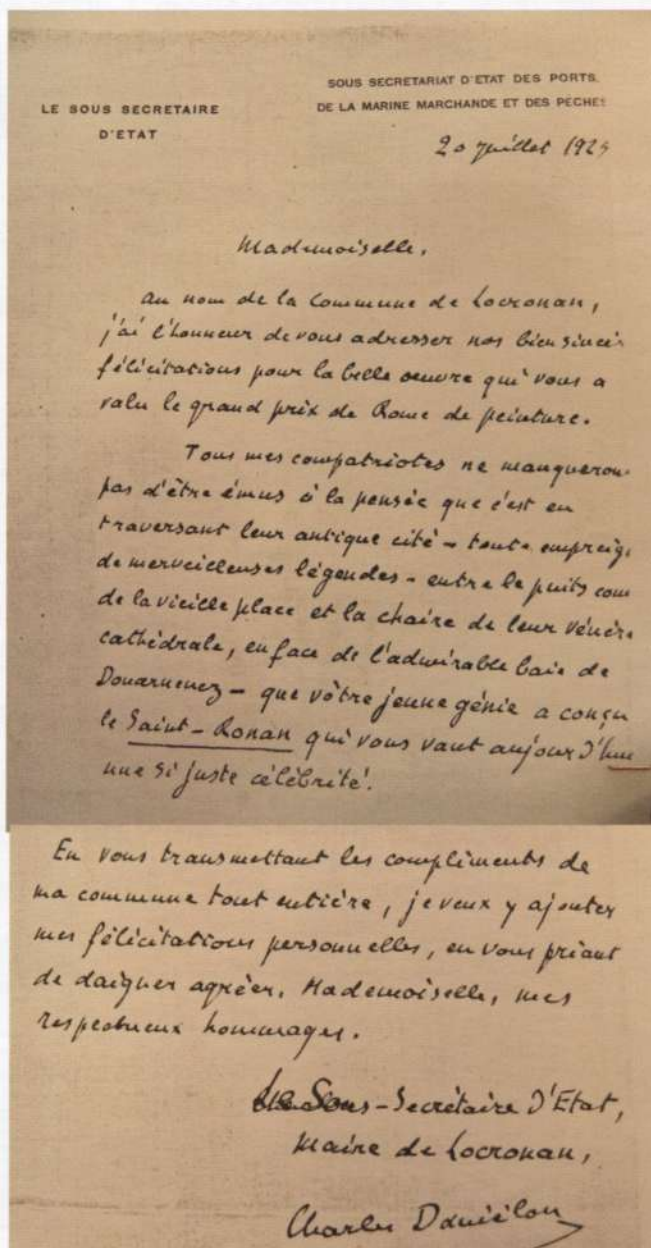 LE SOUS SECRETAIRE
D'ETAT
SOUS SECRETARIAT D'ETAT DES PORTS.
DE LA MARINE MARCHANDE ET DES PECHES
20 juillet 1925
Mademoiselle,
Au nom de la Commune de Locronan,
j'ai l'honneur de vous adresser nos bien sincèr
félicitations pour la belle oeuvre qui vous a
valu le grand prix de Rome de peinture.
Tous mes compatriotes ne manqueron
pas d'être émus à la pensée que c'est en
traversant leur antique cité - toute empreig
de merveilleuses légendes - entre le puits com
de la vieille place et la chaire de leur vénéré
cathédrale, en face de l'admirable baie de
Douarnenez - que vôtre jeune génie a conçu
le Saint-Ronan qui vous vaut aujourd'hui
une si juste célébrité.
En vous transmettant les compliments de
ma commune tout entière, je veux y ajouter
mes félicitations personnelles, en vous priant
de daigner agréer, Mademoiselle, mes
respectueux hommages.
Le Sous-Secrétaire d'Etat,
Maire de Locronan,
Charles Daniélou